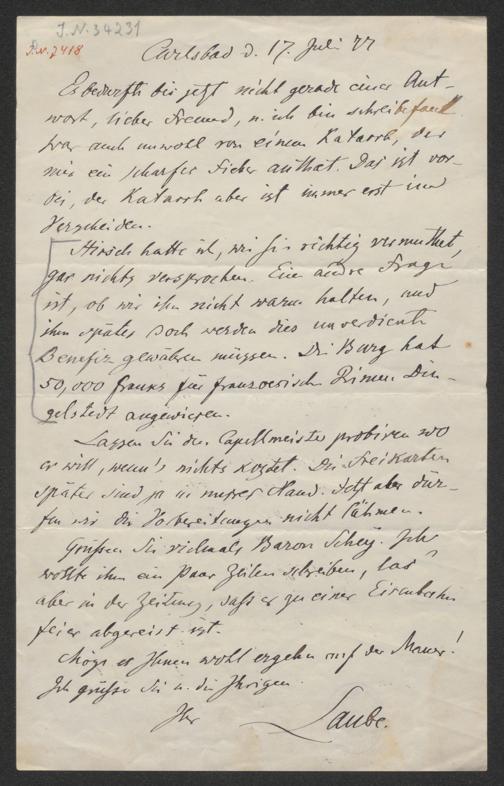 J.N. 34231
J.N. 7418
Carlsbad d. 17. Juli 77
Es bedurfte bis jetzt nicht gerade einer Ant-
wort, lieber Freund, u. ich bin schreibefaul
zwar auch unwohl von einem Katarrh, der
mir ein scharfes Fieber anthat. Das ist vor-
bei, der Katarrh aber ist immer erst im
Verscheiden.
Hirsch hatte ich, wie Sie richtig vermuthet,
gar nichts versprochen. Eine andre Frage
ist, ob wir ihn nicht warm halten, und
ihm später doch werden dies unverdiente
Benefiz gewähren müssen. Die Burg hat
50,000 franks für franzoesische Dramen Din-
gelstedt angewiesen.
Lassen Sie den Capellmeister probiren wo
er will, wenn's nichts kostet. Die Freikarten
später sind ja in unsrer Hand. Jetzt aber dür-
fen wir die Vorbereitungen nicht lähmen.
Grüßen Sie vielmals Baron Schey. Ich
wollte ihm ein Paar Zeilen schreiben, las
aber in der Zeitung, daß er zu einer Eisenbahn
feier abgereist ist.
Möge es Ihnen wohl ergehen auf der Mauer!
Ich grüße Sie u. die Ihrigen.
Ihr Laube.